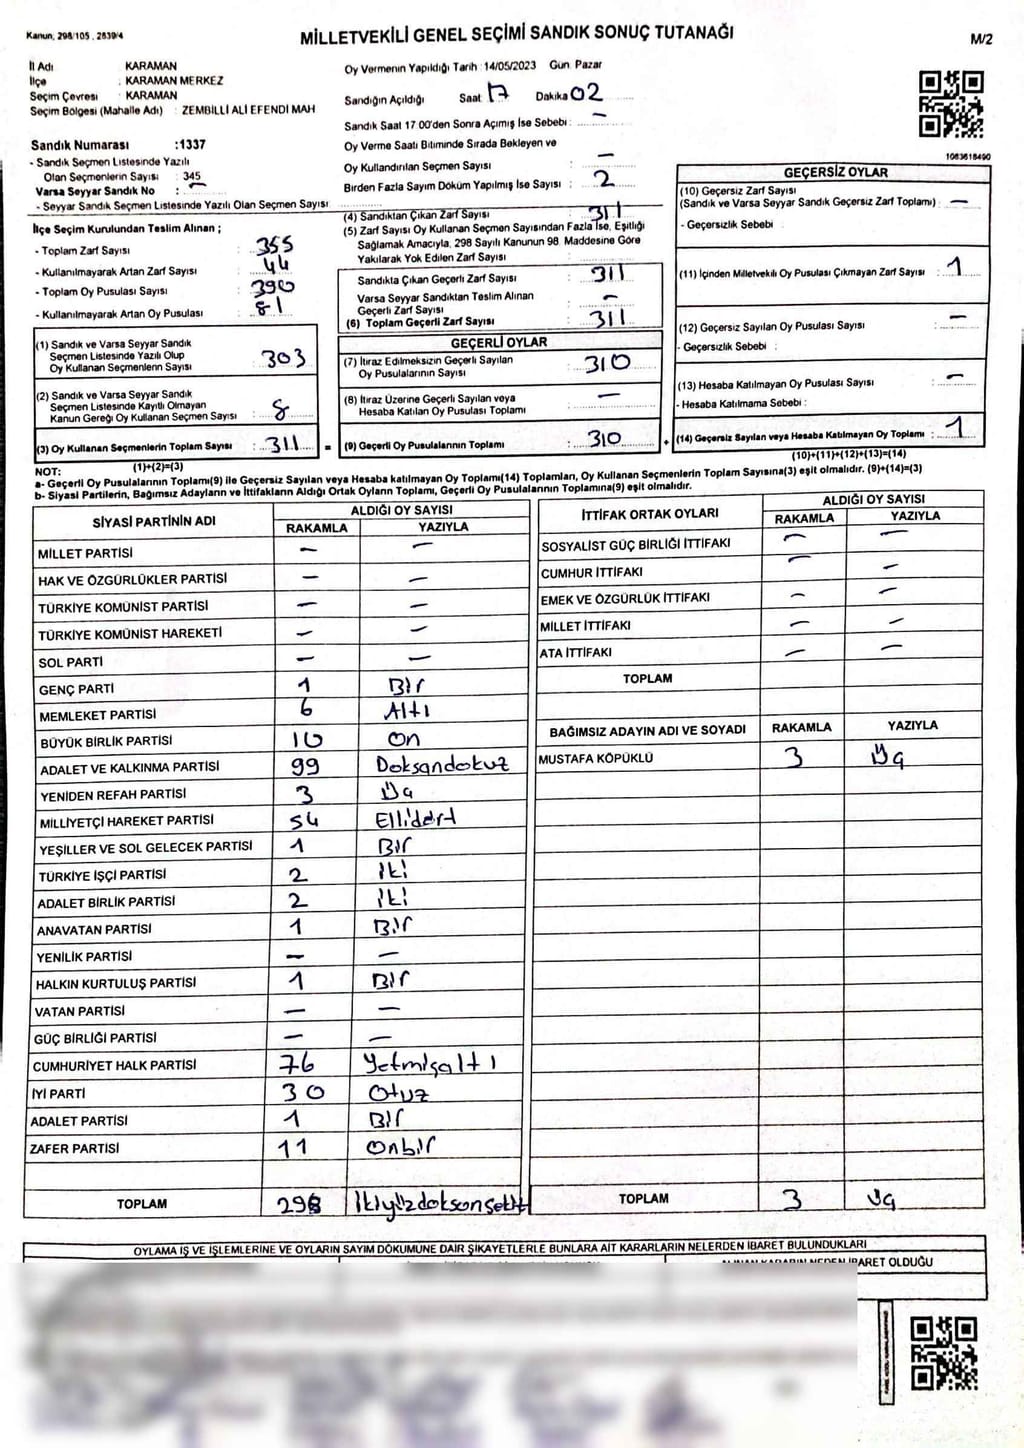 Kanun, 298/105 , 2839/4
MİLLETVEKİLİ GENEL SEÇİMİ SANDIK SONUÇ TUTANAĞI
M/2
İl Adı KARAMAN
İlçe : KARAMAN MERKEZ
Seçim Çevresi : KARAMAN
Seçim Bölgesi (Mahalle Adı) : ZEMBİLLİ ALİ EFENDİ MAH
Sandık Numarası :1337
- Sandık Seçmen Listesinde Yazılı
Olan Seçmenlerin Sayısı : 345
Varsa Seyyar Sandık No : –
- Seyyar Sandık Seçmen Listesinde Yazılı Olan Seçmen Sayısı :
Oy Vermenin Yapıldığı Tarih :14/05/2023 Gün: Pazar
Sandığın Açıldığı Saat 17 Dakika 02
Sandık Saat 17:00'den Sonra Açımış İse Sebebi : –
Oy Verme Saati Bitiminde Sırada Bekleyen ve
Oy Kullandırılan Seçmen Sayısı : –
Birden Fazla Sayım Döküm Yapılmış İse Sayısı : 2
1083618490
İlçe Seçim Kurulundan Teslim Alınan ;
- Toplam Zarf Sayısı : 355
- Kullanılmayarak Artan Zarf Sayısı : 44
- Toplam Oy Pusulası Sayısı : 390
- Kullanılmayarak Artan Oy Pusulası : 81
(1) Sandık ve Varsa Seyyar Sandık
Seçmen Listesinde Yazılı Olup
Oy Kullanan Seçmenlerin Sayısı : 303
(2) Sandık ve Varsa Seyyar Sandık
Seçmen Listesinde Kayıtlı Olmayan
Kanun Gereği Oy Kullanan Seçmen Sayısı : 8
(3) Oy Kullanan Seçmenlerin Toplam Sayısı : 311 =
(1)+(2)=(3)
(4) Sandıktan Çıkan Zarf Sayısı : 311
(5) Zarf Sayısı Oy Kullanan Seçmen Sayısından Fazla İse, Eşitliği
Sağlamak Amacıyla, 298 Sayılı Kanunun 98. Maddesine Göre
Yakılarak Yok Edilen Zarf Sayısı :
Sandıkta Çıkan Geçerli Zarf Sayısı : 311
Varsa Seyyar Sandıktan Teslim Alınan
Geçerli Zarf Sayısı : –
(6) Toplam Geçerli Zarf Sayısı : 311
GEÇERLİ OYLAR
(7) İtiraz Edilmeksizin Geçerli Sayılan
Oy Pusulalarının Sayısı : 310
(8) İtiraz Üzerine Geçerli Sayılan veya
Hesaba Katılan Oy Pusulası Toplamı : –
(9) Geçerli Oy Pusulalarının Toplamı : 310 +
GEÇERSİZ OYLAR
(10) Geçersiz Zarf Sayısı
(Sandık ve Varsa Seyyar Sandık Geçersiz Zarf Toplamı) : –
- Geçersizlik Sebebi :
(11) İçinden Milletvekili Oy Pusulası Çıkmayan Zarf Sayısı : 1
(12) Geçersiz Sayılan Oy Pusulası Sayısı : –
- Geçersizlik Sebebi :
(13) Hesaba Katılmayan Oy Pusulası Sayısı : –
- Hesaba Katılmama Sebebi :
(14) Geçersiz Sayılan veya Hesaba Katılmayan Oy Toplamı : 1
(10)+(11)+(12)+(13)=(14)
NOT:
a- Geçerli Oy Pusulalarının Toplamı(9) ile Geçersiz Sayılan veya Hesaba katılmayan Oy Toplamı(14) Toplamları, Oy Kullanan Seçmenlerin Toplam Sayısına(3) eşit olmalıdır. (9)+(14)=(3)
b- Siyasi Partilerin, Bağımsız Adayların ve İttifakların Aldığı Ortak Oyların Toplamı, Geçerli Oy Pusulalarının Toplamına(9) eşit olmalıdır.
SİYASİ PARTİNİN ADI ALDIĞI OY SAYISI
RAKAMLA YAZIYLA
MİLLET PARTİSİ – –
HAK VE ÖZGÜRLÜKLER PARTİSİ – –
TÜRKİYE KOMÜNİST PARTİSİ – –
TÜRKİYE KOMÜNİST HAREKETİ – –
SOL PARTİ – –
GENÇ PARTİ 1 Bir
MEMLEKET PARTİSİ 6 Altı
BÜYÜK BİRLİK PARTİSİ 10 On
ADALET VE KALKINMA PARTİSİ 99 Doksandokuz
YENİDEN REFAH PARTİSİ 3 Üç
MİLLİYETÇİ HAREKET PARTİSİ 54 Ellidört
YEŞİLLER VE SOL GELECEK PARTİSİ 1 Bir
TÜRKİYE İŞÇİ PARTİSİ 2 İki
ADALET BİRLİK PARTİSİ 2 İki
ANAVATAN PARTİSİ 1 Bir
YENİLİK PARTİSİ – –
HALKIN KURTULUŞ PARTİSİ 1 Bir
VATAN PARTİSİ – –
GÜÇ BİRLİĞİ PARTİSİ – –
CUMHURİYET HALK PARTİSİ 76 Yetmişaltı
İYİ PARTİ 30 Otuz
ADALET PARTİSİ 1 Bir
ZAFER PARTİSİ 11 Onbir
TOPLAM 298 İkiyüzdoksansekiz
İTTİFAK ORTAK OYLARI ALDIĞI OY SAYISI
RAKAMLA YAZIYLA
SOSYALİST GÜÇ BİRLİĞİ İTTİFAKI – –
CUMHUR İTTİFAKI – –
EMEK VE ÖZGÜRLÜK İTTİFAKI – –
MİLLET İTTİFAKI – –
ATA İTTİFAKI – –
TOPLAM
BAĞIMSIZ ADAYIN ADI VE SOYADI RAKAMLA YAZIYLA
MUSTAFA KÖPÜKLÜ 3 Üç
TOPLAM 3 Üç
OYLAMA İŞ VE İŞLEMLERİNE VE OYLARIN SAYIM DÖKÜMÜNE DAİR ŞİKAYETLERLE BUNLARA AİT KARARLARIN NELERDEN İBARET BULUNDUKLARI
İBARET OLDUĞU